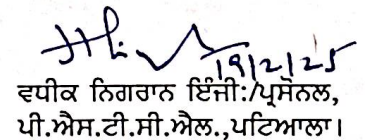 19/2/25
ਵਧੀਕ ਨਿਗਰਾਨ ਇੰਜੀ:/ਪ੍ਰਸੋਨਲ,
ਪੀ.ਐਸ.ਟੀ.ਸੀ.ਐਲ.,ਪਟਿਆਲਾ।